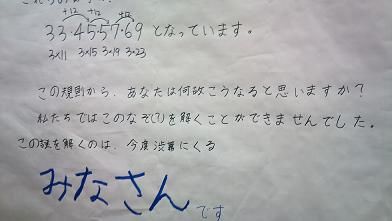 +12 +12 +12
33・45・57・69 となっています。
3×11 3×15 3×19 3×23
この規則から、あなたは何故こうなると思いますか?
私たちではこのなぞ(?)を解くことができませんでした。
この謎を解くのは、今度渋幕にくる
みなさん です